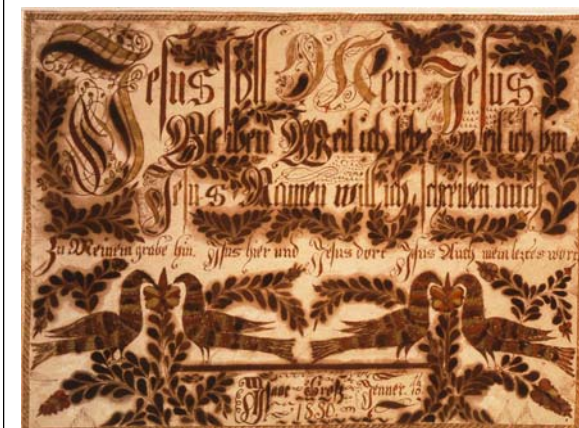 Jesus soll Mein Jesus
Bleiben Weil ich lebe Weil ich bin
Jesus Namen will ich schreiben auch
Zu Meinem grabe hin. Jesus hier und Jesus dort Jesus Auch mein leztes wort
Groß Jenner
1830